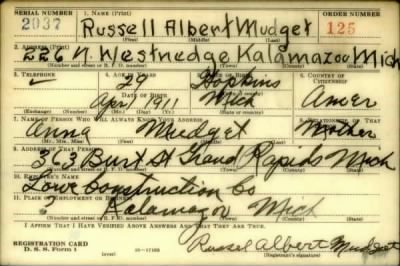 SERIAL NUMBER 1. NAME (Print) ORDER NUMBER
2037 Russell Albert Mudget 125
(First) (Middle) (Last)
2. ADDRESS (Print)
N. Westnedge Kalamazoo Mich
(Number and street or R. F. D. number) (Town) (County) (State)
3. TELEPHONE 4. AGE IN YEARS 5. PLACE OF BIRTH 6. COUNTRY OF CITIZENSHIP
29 Hopkins
Apr 1911 Mich Amer
(Exchange) (Number) (Mo.) (Day) (Yr.) (State or country)
7. NAME OF PERSON WHO WILL ALWAYS KNOW YOUR ADDRESS 8. RELATIONSHIP OF THAT PERSON
Anna Mudget Mother
(Mr., Mrs., Miss) (First) (Middle) (Last)
9. ADDRESS OF THAT PERSON
363 Burt St Grand Rapids Mich
(Number and street or R. F. D. number) (Town) (County) (State)
10. EMPLOYER'S NAME
Lowe Construction Co
11. PLACE OF EMPLOYMENT OR BUSINESS
? Kalamazoo Mich
(Number and street or R. F. D. number) (Town) (County) (State)
I AFFIRM THAT I HAVE VERIFIED ABOVE ANSWERS AND THAT THEY ARE TRUE.
REGISTRATION CARD
D. S. S. Form 1 16—17105
Russel Albert Mudget
(Registrant's signature)